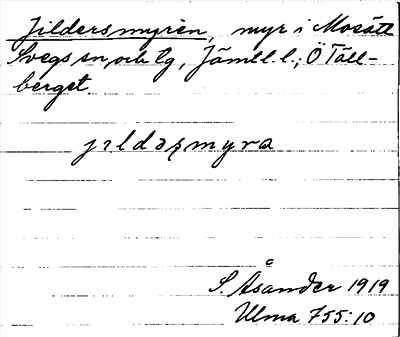 Jildersmyren, myr i Mosätt
Svegs sn, och tg, Jämtl. l.; Ö Täll-
berget
jıldəʂmyra
S. Åsander 1919
Ulma 755:10